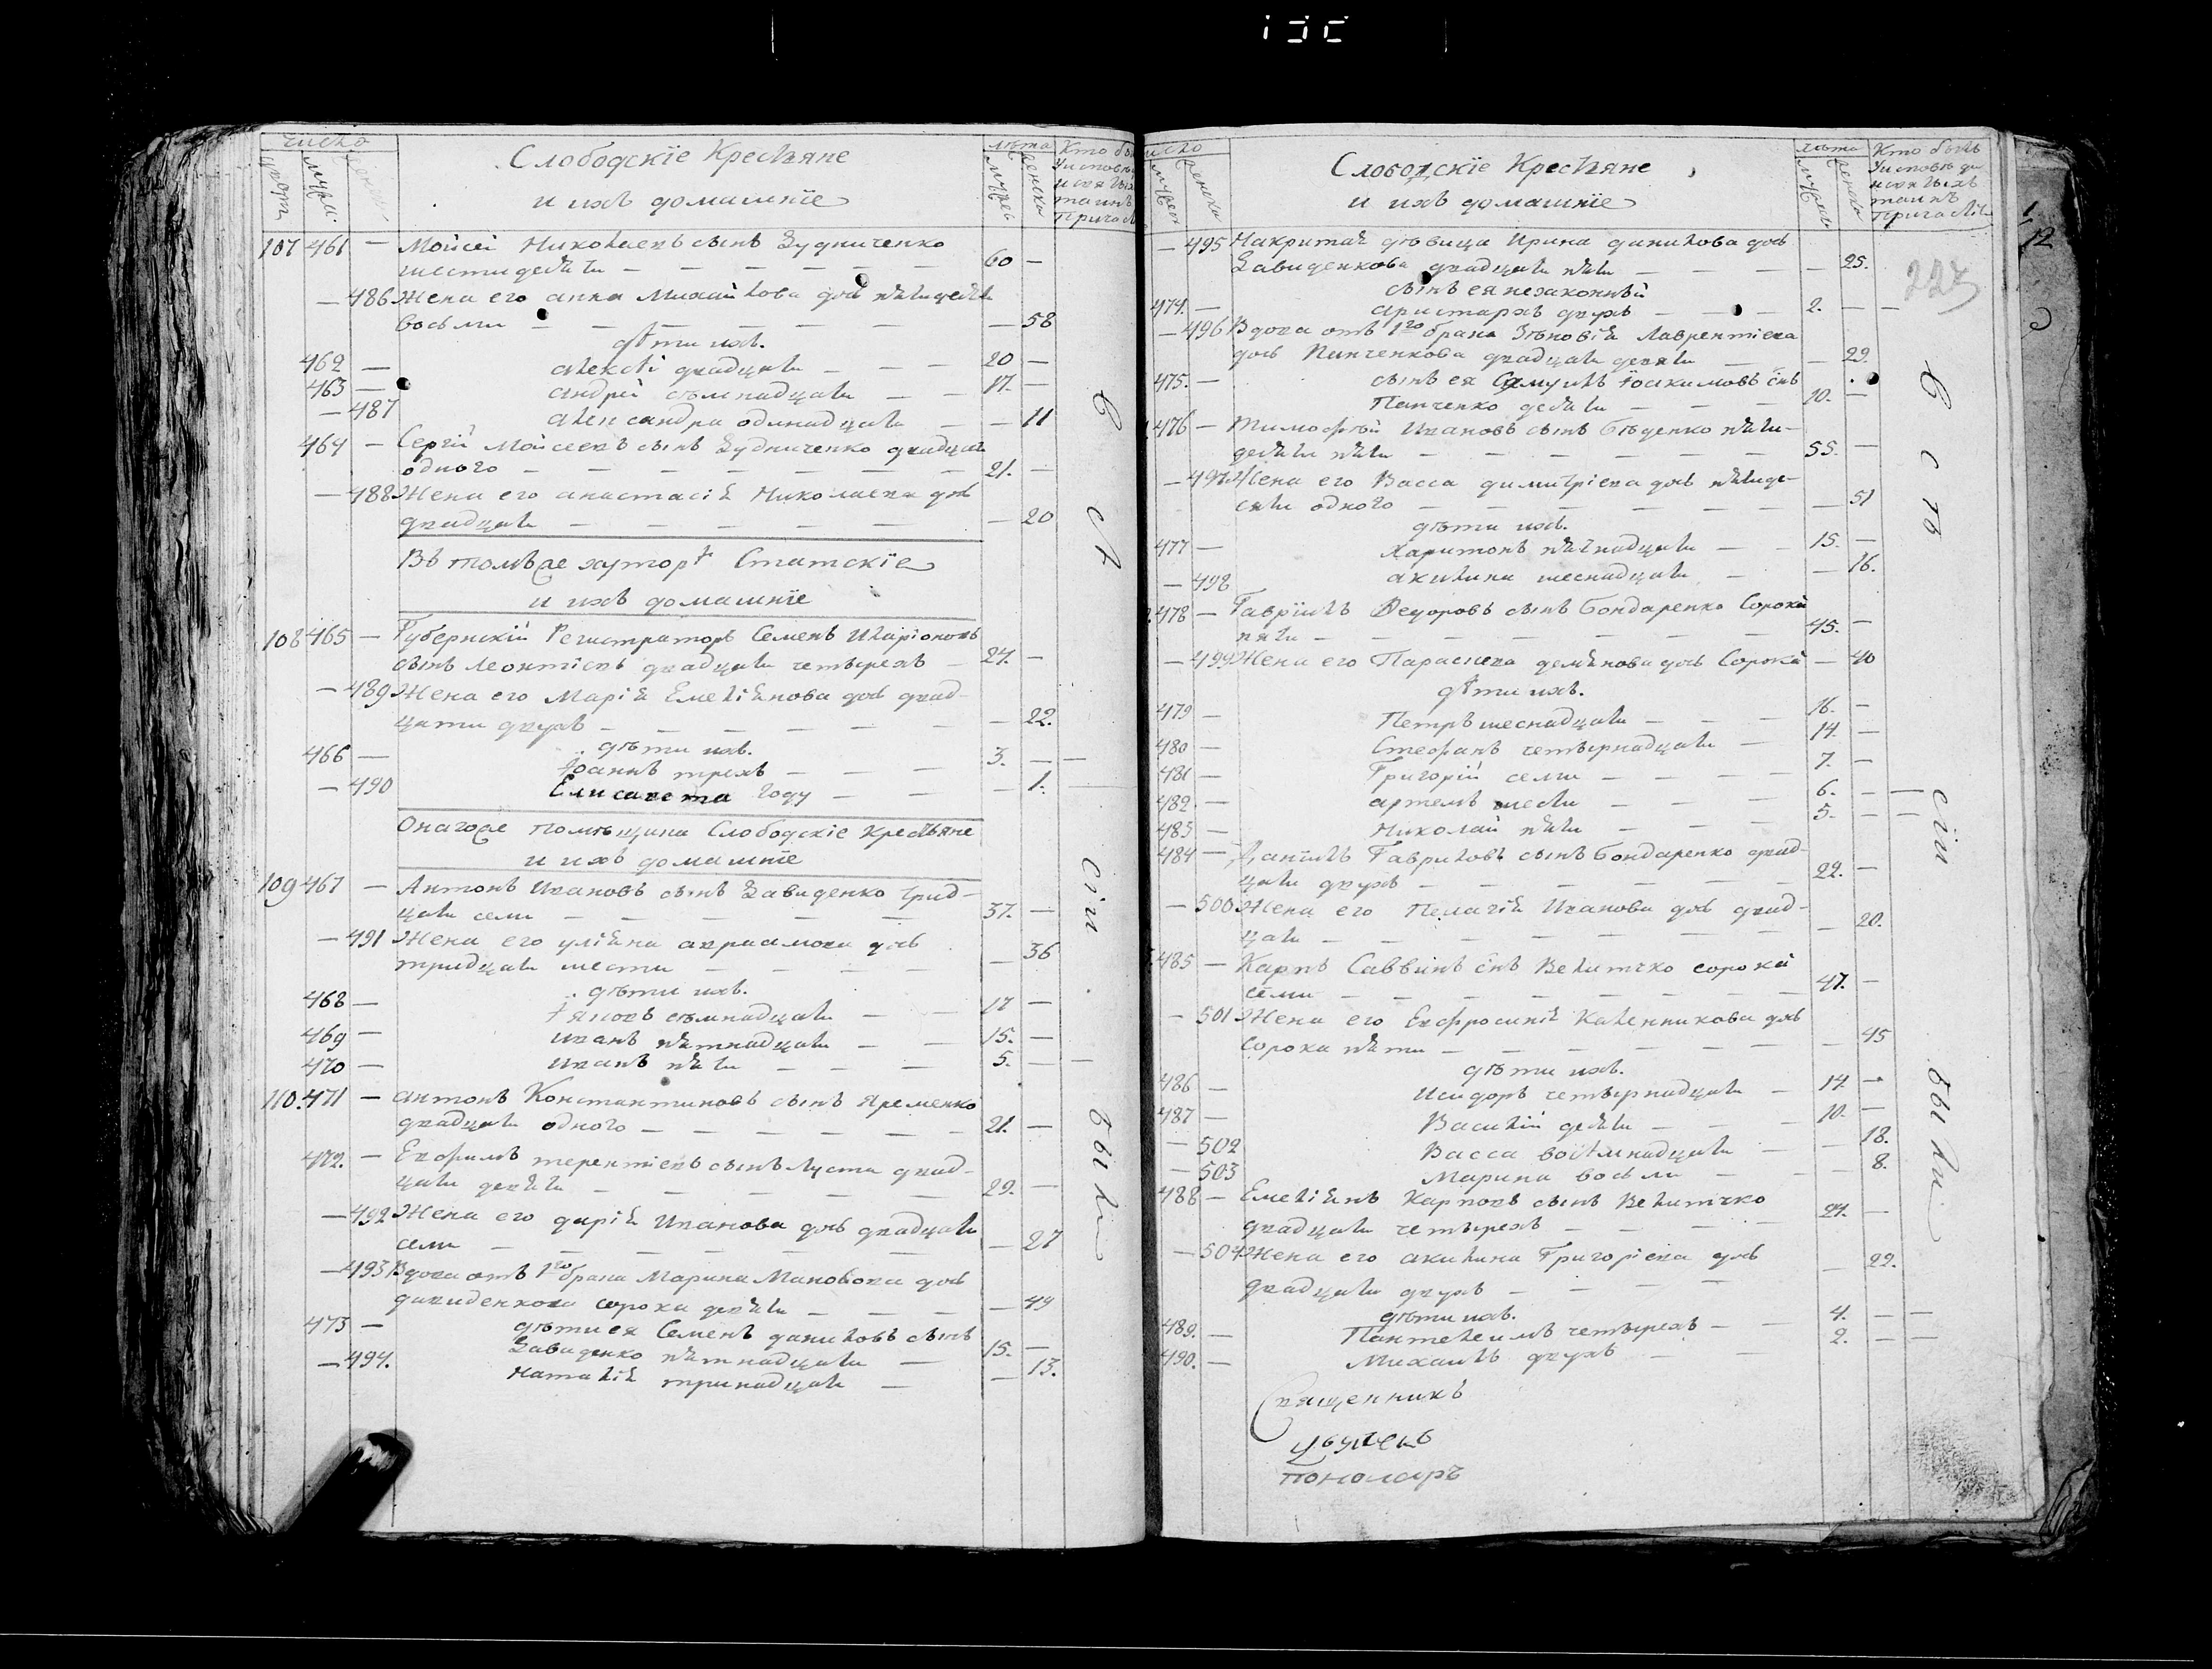 число
Слободскіе Крестьяне
и ихъ домашніе
лѣта
107 461 — Мойсей Николаевъ сынъ Зудниченко
шестидесяти — 60 —
— 486 Жена его анна Михайлова дочь пятидесяти
восьми — — 58
дѣти ихъ.
462 — алексѣй двадцати — 20 —
463 — андрей семнадцати — 17. —
— 487 александра одинадцати — — 11
464 — Сергій Мойсеевъ сынъ Зудниченко двадцати
одного — 21. —
— 488 Жена его анастасія Николаева дочь
двадцати — — 20
Въ томъже хуторѣ Статскіе
и ихъ домашніе
108 465 — Губернскій Регистраторъ Семенъ Иларіоновъ
сынъ Леонтіевъ двадцати четырехъ — 24. —
— 489 Жена его Марія Емеліянова дочь двад-
цати двухъ — — 22.
дѣти ихъ.
466 — Іоаннъ трехъ — 3. — —
— 490 Елисавета году — — 1.
Онагоже помѣщика Слободскіе Крестьяне
и ихъ домашніе
109 467 — Антонъ Ивановъ сынъ Завиденко трид-
цати семи — 37. —
— 491 Жена его уліяна авраамова дочь
тридцати шести — — 36
дѣти ихъ.
468 — Іяковъ семнадцати — 17 —
469 — иванъ пятнадцати — 15. —
470 — иванъ пяти — 5. — —
110. 471 — антонъ Константиновъ сынъ Яременко
двадцати одного — 21. —
472. — Евфимъ терентіевъ сынъ Луста двад-
цати девяти — 29. —
— 492 Жена его дарія Иванова дочь двадцати
семи — — 27
— 493 Вдова отъ 1го брака Марина дочь
сорока девяти — — 49
473 — дѣти ея Семенъ даниловъ сынъ
Завиденко пятнадцати — 15. —
— 494. наталія тринадцати — — 13.
Есть
сіи
были
число
Слободскіе Крестьяне
и ихъ домашніе
лѣта
Кто былъ
227
— 495 дѣвица Ирина данилова дочь
Завиденкова двадцати пяти — — 25.
сынъ ея незаконный
474. — аристархъ двухъ — 2. — —
— 496 Вдова отъ 1го брака Зѣновія Лаврентіева
дочь Пинченкова двадцати девяти — — 29.
475. — сынъ ея Самуилъ Іоакимовъ снъ
Панченко десяти — 10. —
476 — Тимофѣй Ивановъ сынъ Бѣденко пяти-
десяти пяти — 55. —
— 497 Жена его Васса димитріева дочь пятиде-
сяти одного — — 51
дѣти ихъ.
477 — Харитонъ пятнадцати — 15. —
— 498 акилина шеснадцати — — 16.
478 — Гавріилъ Ѳедоровъ сынъ Бондаренко Сорока
пяти — 45. —
— 499 Жена его Параскева демянова дочь Сорока — — 40
дѣти ихъ.
479 — Петръ шеснадцати — 16. —
480 — Стефанъ четырнадцати — 14. —
481 — Григорій семи — 7. —
482. — артемъ шести — 6. — —
483 — Николай пяти — 5. — —
484 — Даніилъ Гавриловъ сынъ Бондаренко двад-
цати двухъ — 22. —
— 500 Жена его Пелагія Иванова дочь двад-
цати — — 20.
485 — Карпъ Саввинъ снъ Велитчко сорока
семи — 47. —
— 501 Жена его Евфросинія Каленникова дочь
сорока пяти — — 45
дѣти ихъ.
486 — Исидоръ четырнадцати — 14. —
487 — Василій десяти — 10. —
— 502 Васса восьмнадцати — — 18.
— 503 Марина восьми — — 8.
488 — Емеліянъ Карповъ сынъ Велитчко
двадцати четырехъ — 24. —
— 504 Жена его акилина Григоріева дочь
двадцати двухъ — — 22.
дѣти ихъ.
489. — Пантелеимъ четырехъ — 4. — —
490. — Михаилъ двухъ — 2. — —
Есть
сіи
были
Священникъ
пономаръ